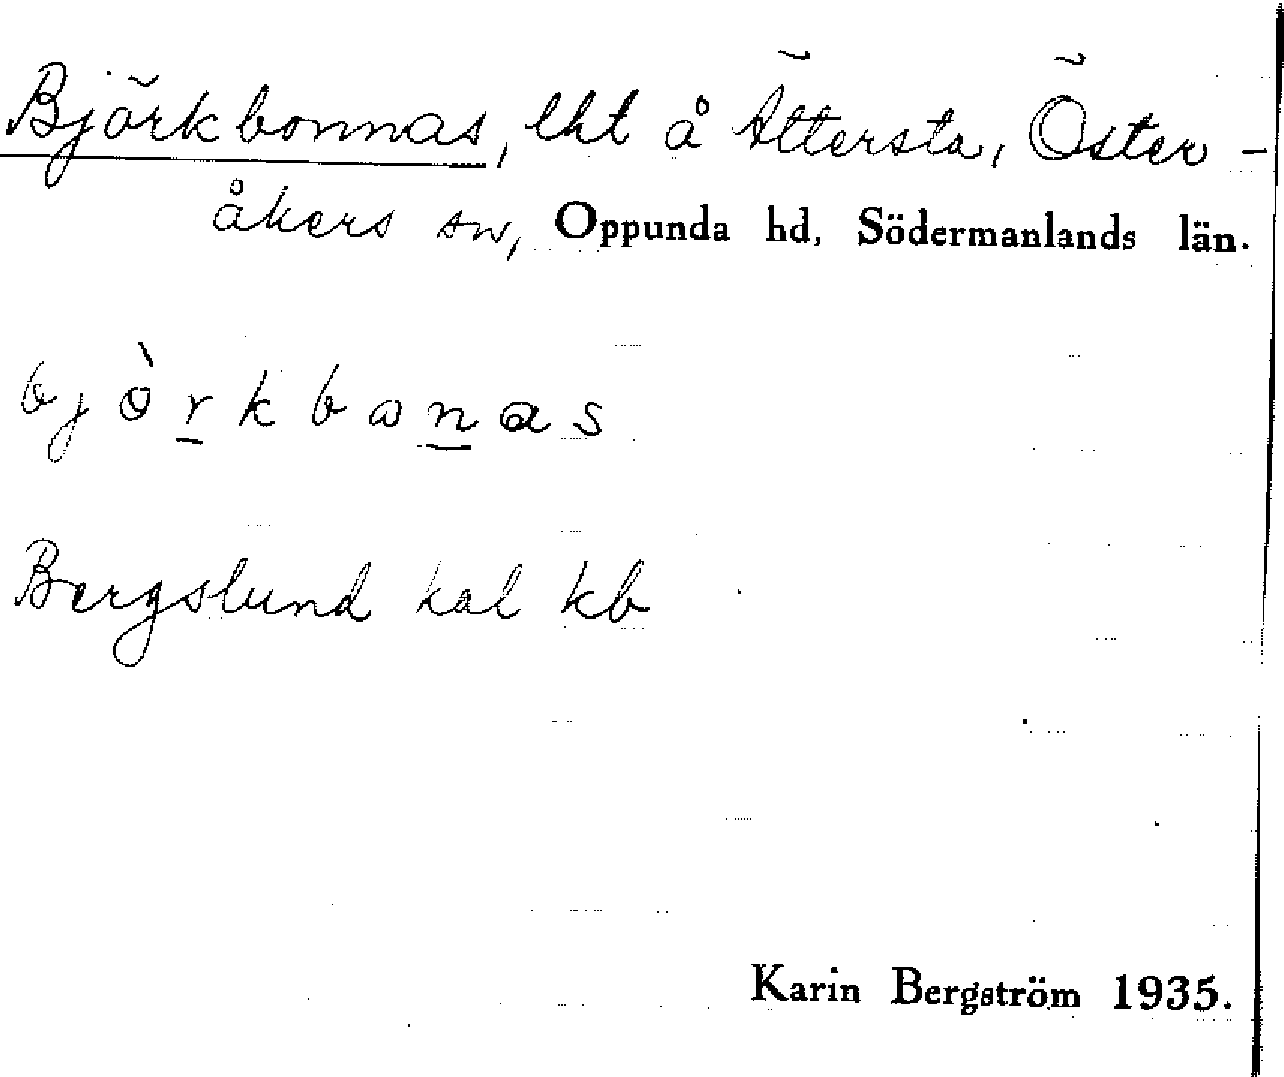 Björkbonnas, lht å Ättersta, Öster-
åkers sn, Oppunda hd, Södermanlands län.
bjòrkbonas
Bergslund kal kb
Karin Bergström 1935.